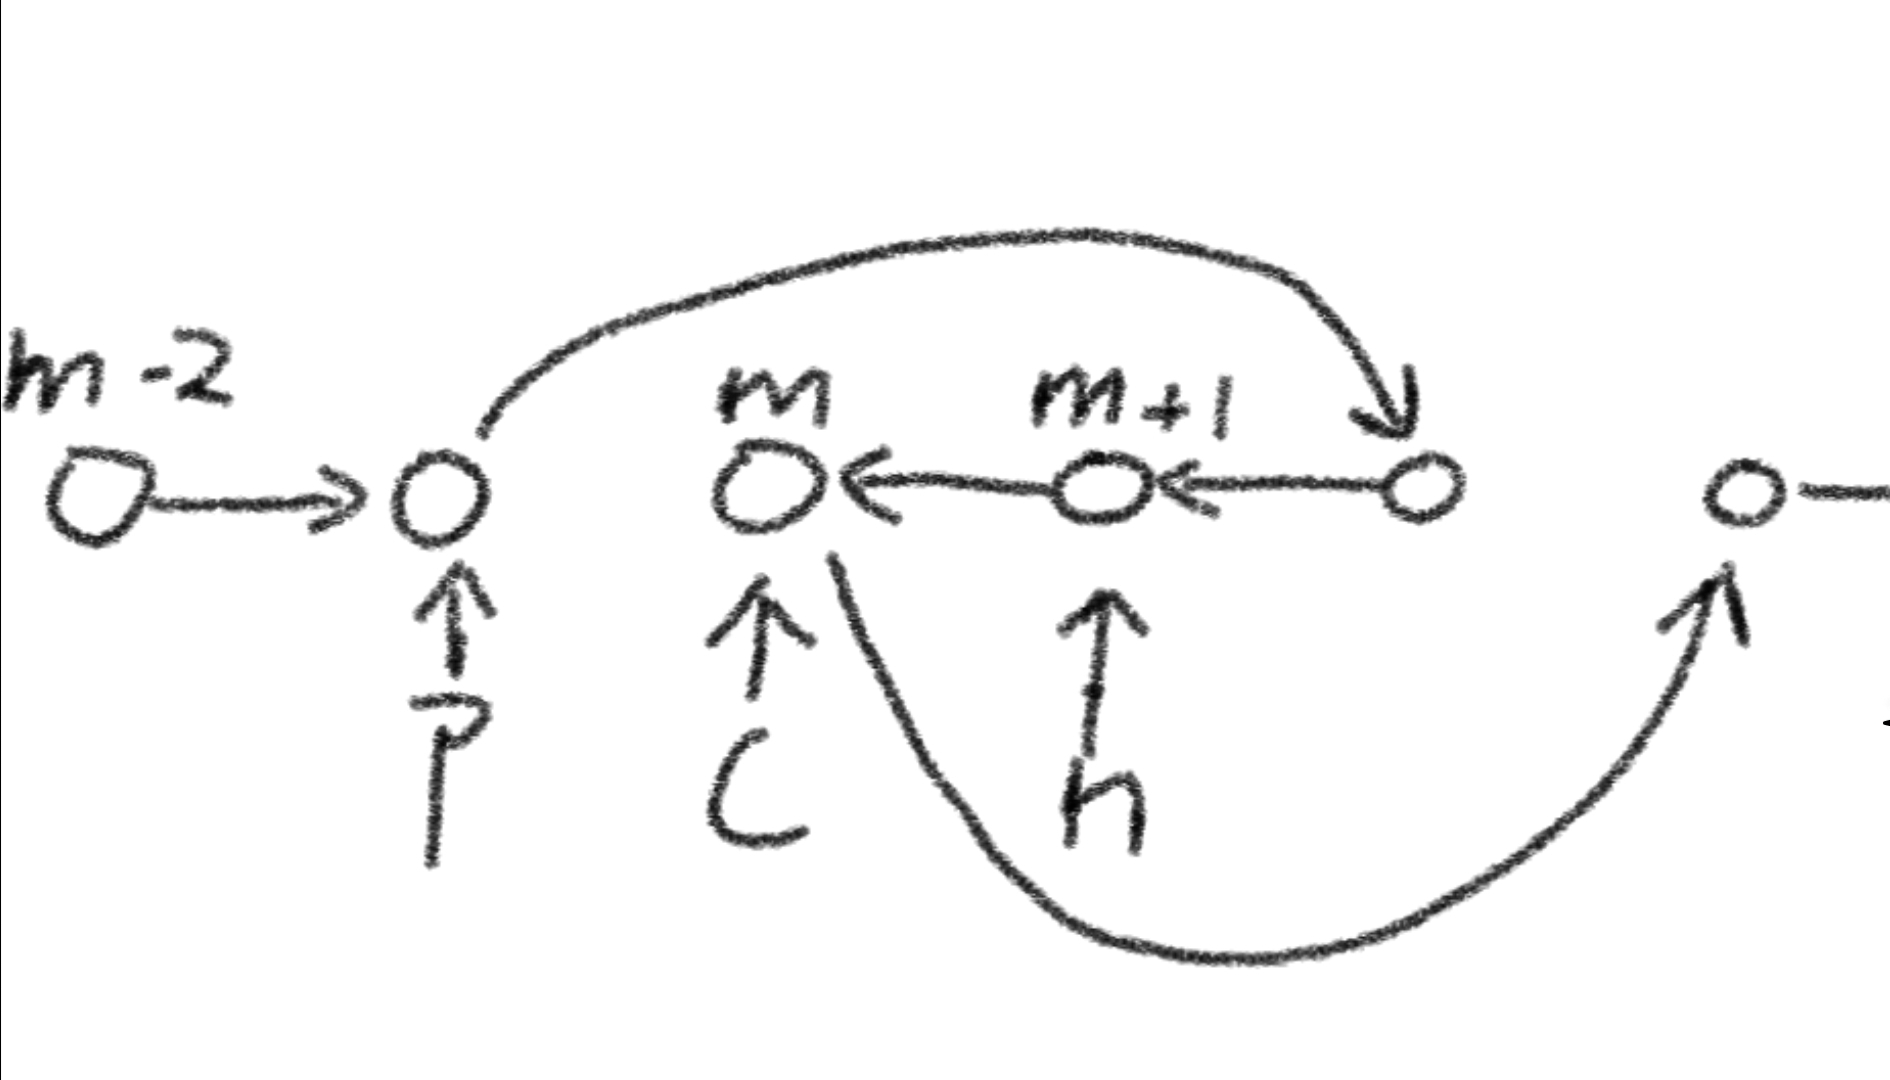 m-2
m
m+1
P
C
n